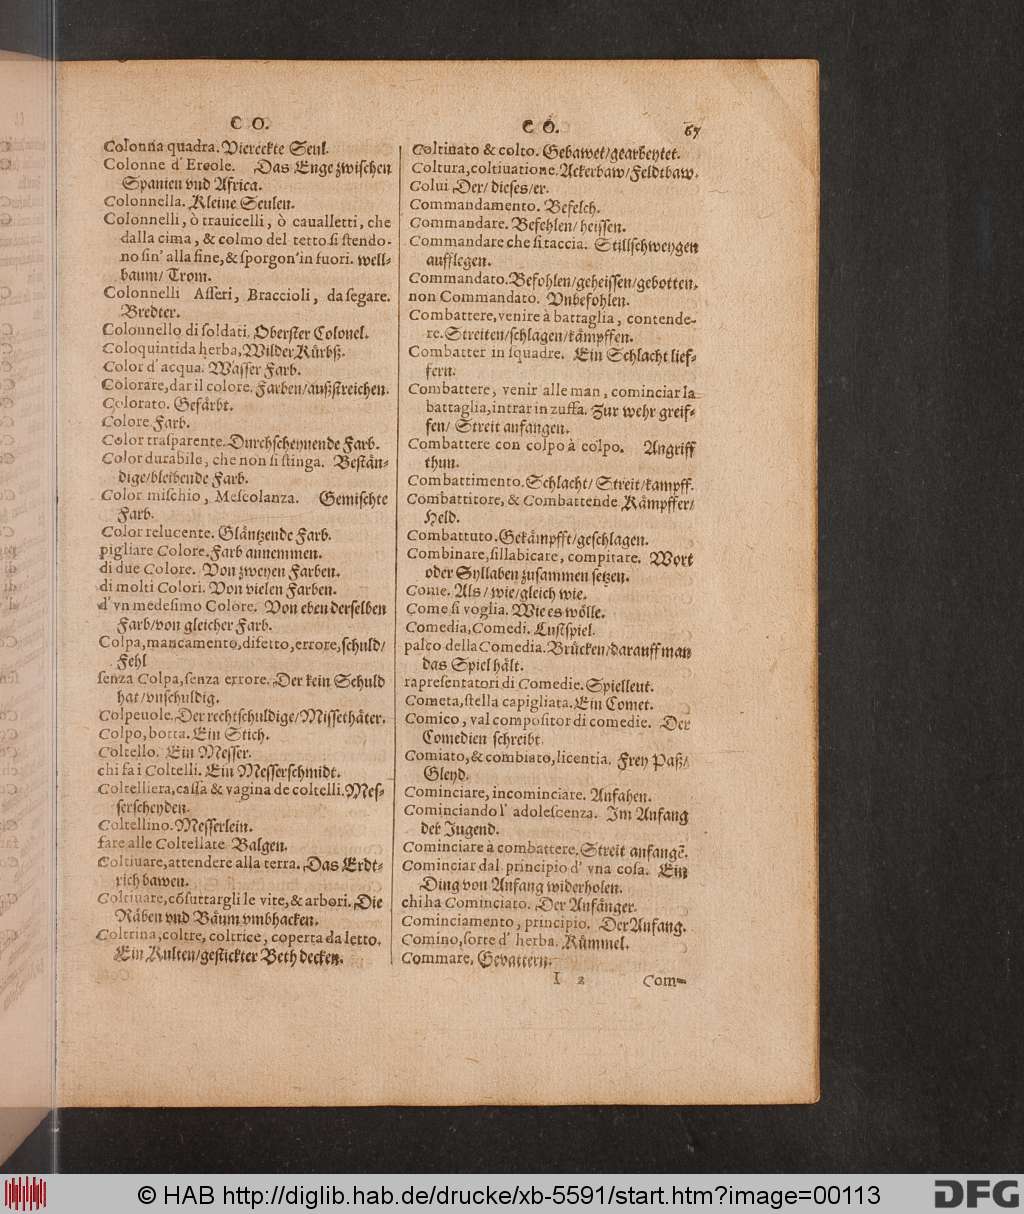 C O.
Colonna quadra. Viereckte Seul.
Colonne d' Ercole. Das Enge zwischen
Spanien vnd Africa.
Colonnella. Kleine Seulen.
Colonnelli, ò trauicelli, ò caualletti, che
dalla cima, & colmo del tetto si stendo-
no sin' alla fine, & sporgon' in fuori. well-
baum/ Trom.
Colonnelli Asseri, Braccioli, da segare.
Bredter.
Colonnello di soldati. Oberster Colonel.
Coloquintida herba, Wilder Kürbß.
Color d' acqua. Wasser Farb.
Colorare, dar il colore. Farben/außstreichen.
Colorato. Gefärbt.
Colore Farb.
Color trasparente. Durchscheynende Farb.
Color durabile, che non si stinga. Bestän-
dige/bleibende Farb.
Color mischio, Mescolanza. Gemischte
Farb.
Color relucente. Gläntzende Farb.
pigliare Colore. Farb annemmen.
di due Colore. Von zweyen Farben.
di molti Colori. Von vielen Farben.
d' vn medesimo Colore. Von eben derselben
Farb/von gleicher Farb.
Colpa, mancamento, difetto, errore, schuld/
Fehl
senza Colpa, senza errore. Der kein Schuld
hat/vnschuldig.
Colpeuole. Der rechtschuldige/Missethäter.
Colpo, botta. Ein Stich.
Coltello. Ein Messer.
chi fa i Coltelli. Ein Messerschmidt.
Coltelliera, cassa & vagina de coltelli. Mes-
serscheyden.
Coltellino. Messerlein.
fare alle Coltellate Balgen.
Coltiuare, attendere alla terra. Das Erdt-
rich bawen.
Coltiuare, cõsuttargli le vite, & arbori. Die
Räben vnd Bäum vmbhacken.
Coltrina, coltre, coltrice, coperta da letto.
Ein Kulten/gestickter Beth decken.
C O. 67
Coltinato & colto. Gebawet/gearbeytet.
Coltura, coltiuatione. Ackerbaw/Feldtbaw.
Colui Der/ dieses/er.
Commandamento. Befelch.
Commandare. Befehlen/ heissen.
Commandare che si taccia. Stillschweygen
aufflegen.
Commandato. Befohlen/geheissen/gebotten.
non Commandato. Vnbefohlen.
Combattere, venire à battaglia, contende-
re. Streiten/schlagen/kämpffen.
Combatter in squadre. Ein Schlacht lief-
fern.
Combattere, venir alle man, cominciar la
battaglia, intrar in zuffa. Zur wehr greif-
fen/ Streit anfangen.
Combattere con colpo à colpo. Angriff
thun.
Combattimento. Schlacht/ Streit/kampff.
Combattitore, & Combattende Kämpffer/
Held.
Combattuto. Gekämpfft/geschlagen.
Combinare, sillabicare, compitare. Wort
oder Syllaben zusammen setzen.
Come. Als/ wie/gleich wie.
Come si voglia. Wie es wölle.
Comedia, Comedi. Lustspiel.
palco della Comedia. Brücken/darauff man
das Spiel hält.
rapresentatori di Comedie. Spielleut.
Cometa, stella capigliata. Ein Comet.
Comico, val compositor di comedie. Der
Comedien schreibt.
Comiato, & combiato, licentia. Frey Paß/
Gleyd.
Cominciare, incominciare. Anfahen.
Cominciando l' adolescenza. Im Anfang
der Jugend.
Cominciare à combattere. Streit anfangẽ.
Cominciar dal principio d' vna cosa. Ein
Ding von Anfang widerholen.
chi ha Cominciato. Der Anfänger.
Cominciamento, principio. Der Anfang.
Comino, sorte d' herba. Kümmel.
Commare, Gevattern.
I 2 Com-
© HAB http://diglib.hab.de/drucke/xb-5591/start.htm?image=00113
DFG